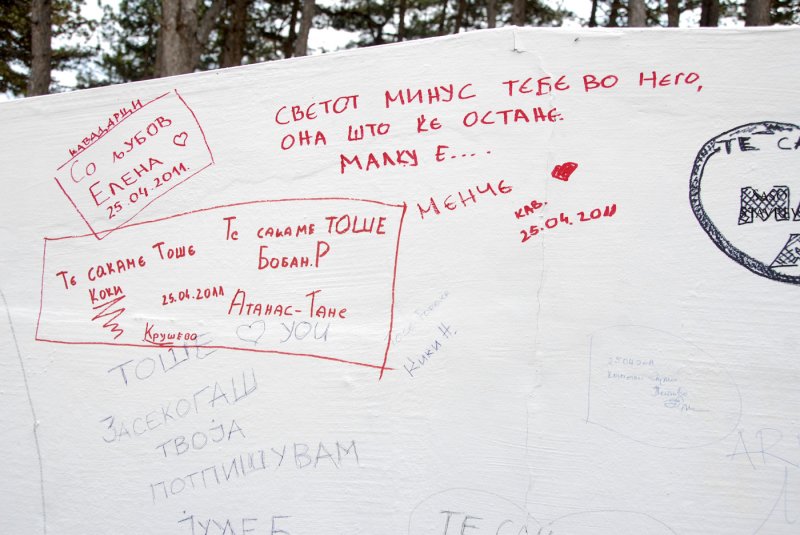 СВЕТОТ МИНУС ТЕБЕ ВО НЕГО,
ОНА ШТО ЌЕ ОСТАНЕ
МАЛКУ Е....
МЕНЧЕ
КАВ.
25.04.2011
КАВАДАРЦИ
СО ЉУБОВ
ЕЛЕНА
25.04.2011.
Те сакаме Тоше
Коки
Те сакаме ТОШЕ
Бобан.Р
25.04.2011
Атанас-Тане
Крушево
ТОШЕ ♡ YOU
ЗАСЕКОГАШ
ТВОЈА
ПОТПИШУВАМ
Кики Н.
ТЕ СА
25.04.2011
ТЕ САК
AR